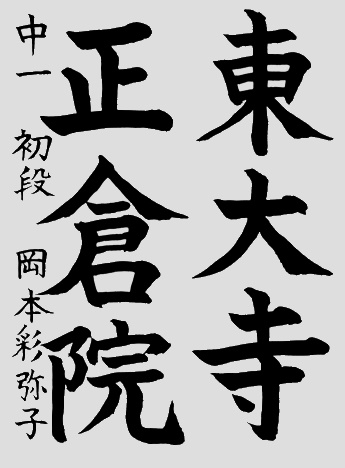 東大寺
正倉院
中一 初段 岡本彩弥子